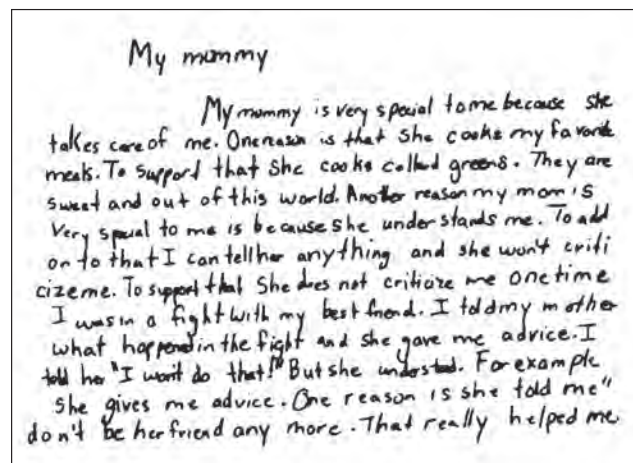 My mommy
My mommy is very special to me because she
takes care of me. One reason is that she cooks my favorite
meals. To support that she cooks collard greens. They are
sweet and out of this world. Another reason my mom is
very special to me is because she understands me. To add
on to that I can tell her anything and she won't criti
cize me. To support that She does not critize me one time
I was in a fight with my best friend. I told my mother
what happened in the fight and she gave me advice. I
told her "I won't do that!" But she understood. For example
She gives me advice. One reason is she told me"
don't be her friend any more. That really helped me.